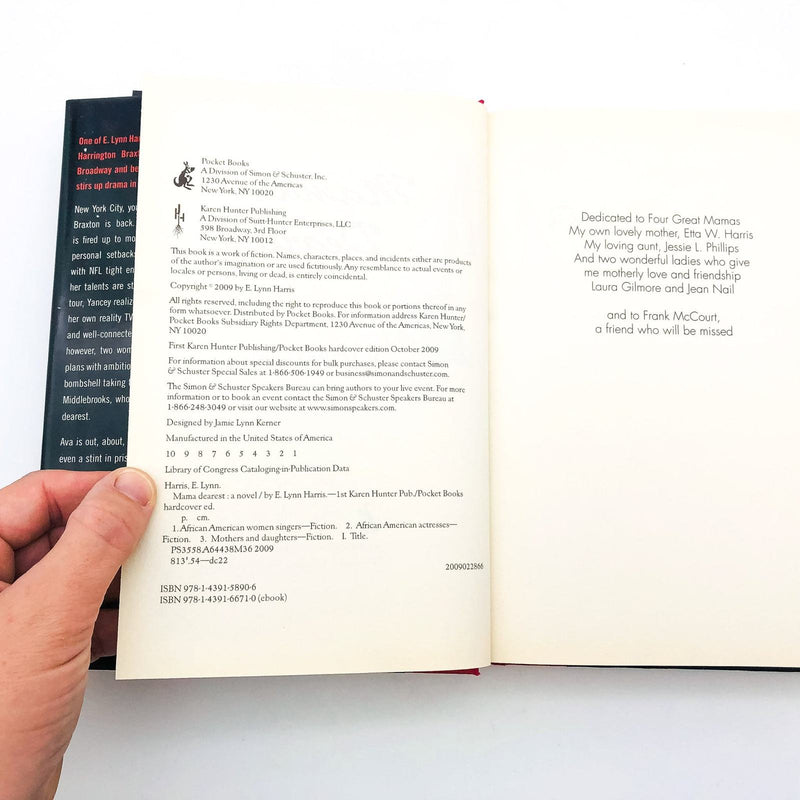 One of E. Lynn
Harrington
Broadway and
stirs up drama in
New York City,
Braxton is back.
is fired up to
personal
with NFL tight
her talents are
tour, Yancey
her own reality
and
however, two
plans with
bombshell taking
Middlebrooks,
dearest.
Ava is out, about,
even a stint in
Pocket Books
A Division of Simon & Schuster, Inc.
1230 Avenue of the Americas
New York, NY 10020
Karen Hunter Publishing
A Division of Suitt-Hunter Enterprises, LLC
598 Broadway, 3rd Floor
New York, NY 10012
This book is a work of fiction. Names, characters, places, and incidents either are products
of the author's imagination or are used fictitiously. Any resemblance to actual events or
locales or persons, living or dead, is entirely coincidental.
Copyright © 2009 by E. Lynn Harris
All rights reserved, including the right to reproduce this book or portions thereof in any
form whatsoever. Distributed by Pocket Books. For information address Karen Hunter/
Pocket Books Subsidiary Rights Department, 1230 Avenue of the Americas, New York,
NY 10020
First Karen Hunter Publishing/Pocket Books hardcover edition October 2009
For information about special discounts for bulk purchases, please contact Simon
& Schuster Special Sales at 1-866-506-1949 or business@simonandschuster.com.
The Simon & Schuster Speakers Bureau can bring authors to your live event. For more
information or to book an event contact the Simon & Schuster Speakers Bureau at
1-866-248-3049 or visit our website at www.simonspeakers.com.
Designed by Jamie Lynn Kerner
Manufactured in the United States of America
10 9 8 7 6 5 4 3 2 1
Library of Congress Cataloging-in-Publication Data
Harris, E. Lynn.
Mama dearest : a novel / by E. Lynn Harris.—1st Karen Hunter Pub./Pocket Books
hardcover ed.
p. cm.
1. African American women singers—Fiction. 2. African American actresses—
Fiction. 3. Mothers and daughters—Fiction. I. Title.
PS3558.A64438M36 2009
813'.54—dc22
2009022866
ISBN 978-1-4391-5890-6
ISBN 978-1-4391-6671-0 (ebook)
Dedicated to Four Great Mamas
My own lovely mother, Etta W. Harris
My loving aunt, Jessie L. Phillips
And two wonderful ladies who give
me motherly love and friendship
Laura Gilmore and Jean Nail
and to Frank McCourt,
a friend who will be missed